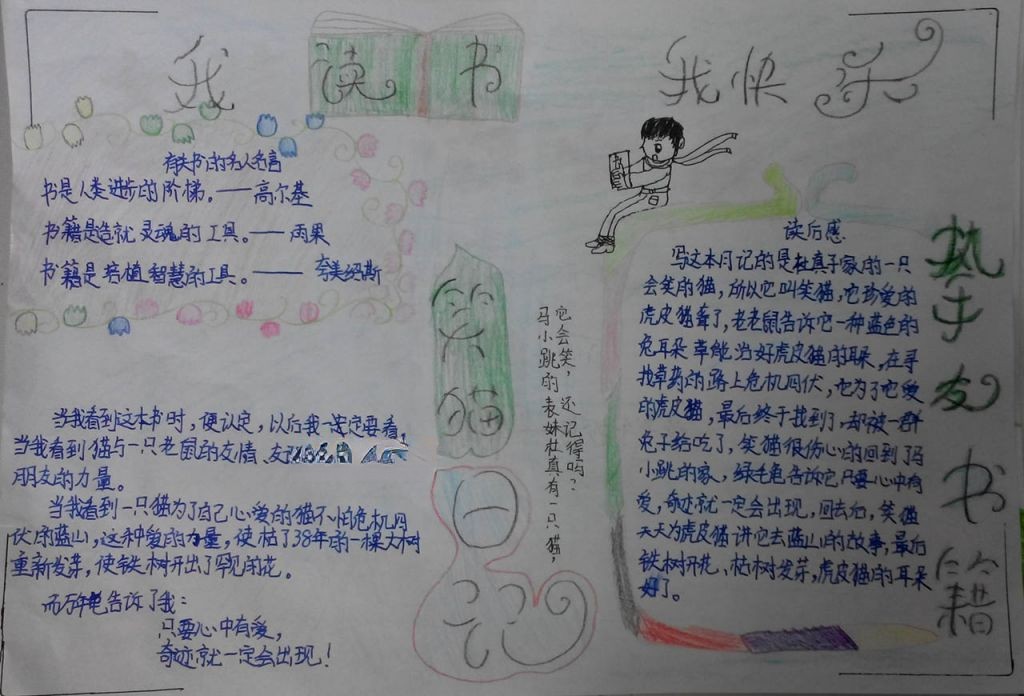 我读书 我快乐
有关书的名人名言
书是人类进步的阶梯。——高尔基
书籍是造就灵魂的工具。——雨果
书籍是培植智慧的工具。——夸美纽斯
当我看到这本书时,便认定,以后我一定要看,
当我看到猫与一只老鼠的友情,友
朋友的力量。
当我看到一只猫为了自己心爱的猫不怕危机四
伏的蓝山,这种爱的力量,使枯了38年的一棵大树
重新发芽,使铁树开出了罕见的花。
而万年龟告诉了我:
只要心中有爱,
奇迹就一定会出现!
笑猫日记
它会笑,还记得吗?
马小跳的表妹杜真有一只猫,
读后感
写这本月记的是杜真子家的一只
会笑的猫,所以它叫笑猫,它珍爱的
虎皮猫聋了,老老鼠告诉它一种蓝色的
兔耳朵草能治好虎皮猫的耳朵,在寻
找草药的路上危机四伏,它为了它爱
的虎皮猫,最后终于找到了,却被一群
兔子给吃了,笑猫很伤心的回到了马
小跳的家,绿毛龟告诉它只要心中有
爱,奇迹就一定会出现,回去后,笑猫
天天为虎皮猫讲它去蓝山的故事,最后
铁树开花、枯树发芽,虎皮猫的耳朵
好了。
挚友书籍